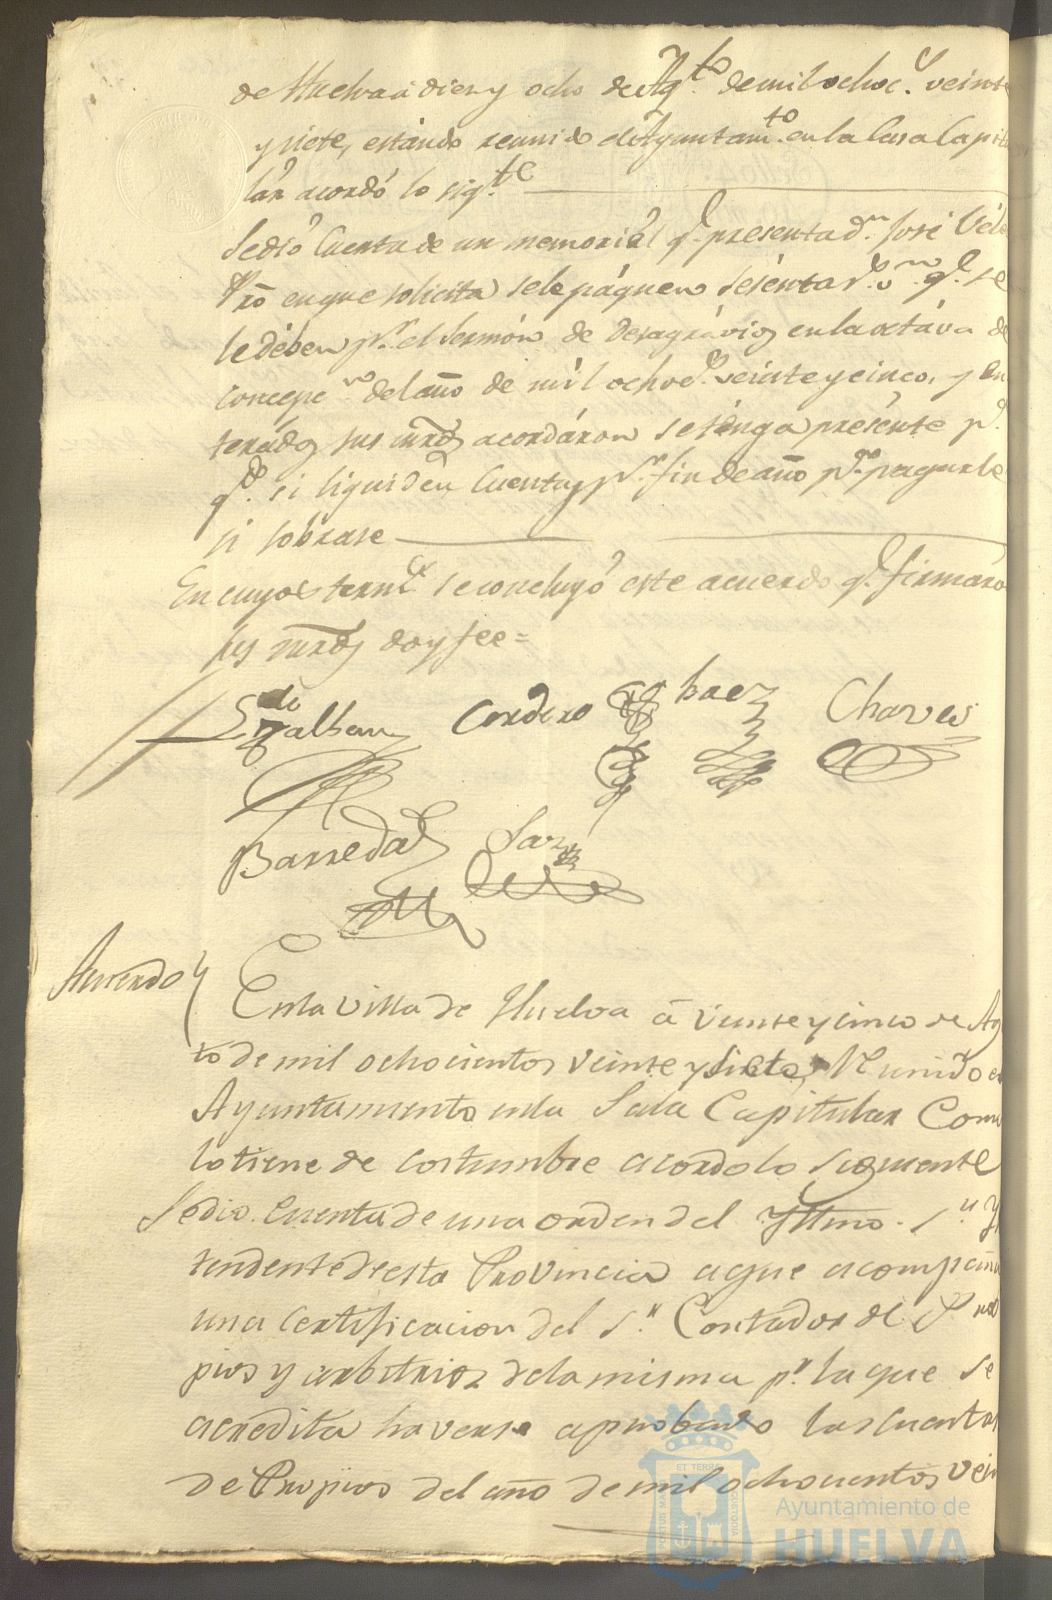 de Huelva á diez y ocho de Agto. de mil ochoc.s veinte
y siete, estándo reunido el Ayuntamto. en la Casa Capitu
lár acordó lo sigte.
Se dió Cuenta de un memoriál q.e presenta d.n José Véle
Pro en que solicita se le páguen sesénta r.s v.n q.e se
le dében p.r el Sermón de desagrávios en la octáva de
Concepc.on del año de mil ochoc.s veinte y cinco, y En
terádos sus mrds acordáron se ténga presénte p.a
q.do si liquiden Cuentas p.r fin de año p.a pagarle
si sobrase
En cuyos term.s se concluyó este acuerdo q.e firmáro
sus mrds doy fee =
Cordero
Chaves
Barreda
Saz
Acuerdo
En la Villa de Huelva á Veinte y cinco de Ag
to de mil ochocientos veinte y siete, Reunido el
Ayuntamiento en la Sala Capitular Como
lo tiene de costumbre acordo lo siguiente
Se dio Cuenta de una orden del Yltmo. S.r Yn
tendente de esta Provincia a que acompaña
una Certificacion del S.r Contador de Pro
pios y arbitrios de la misma p.r la que se
acredita haverse aprobado las Cuentas
de Propios del año de mil ochocientos Vein
Ayuntamiento de
HUELVA